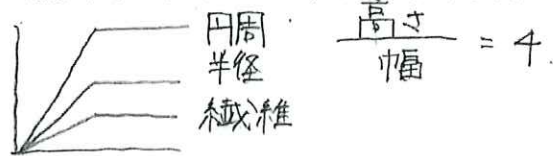 円周
半径
繊維
高さ
幅
= 4.